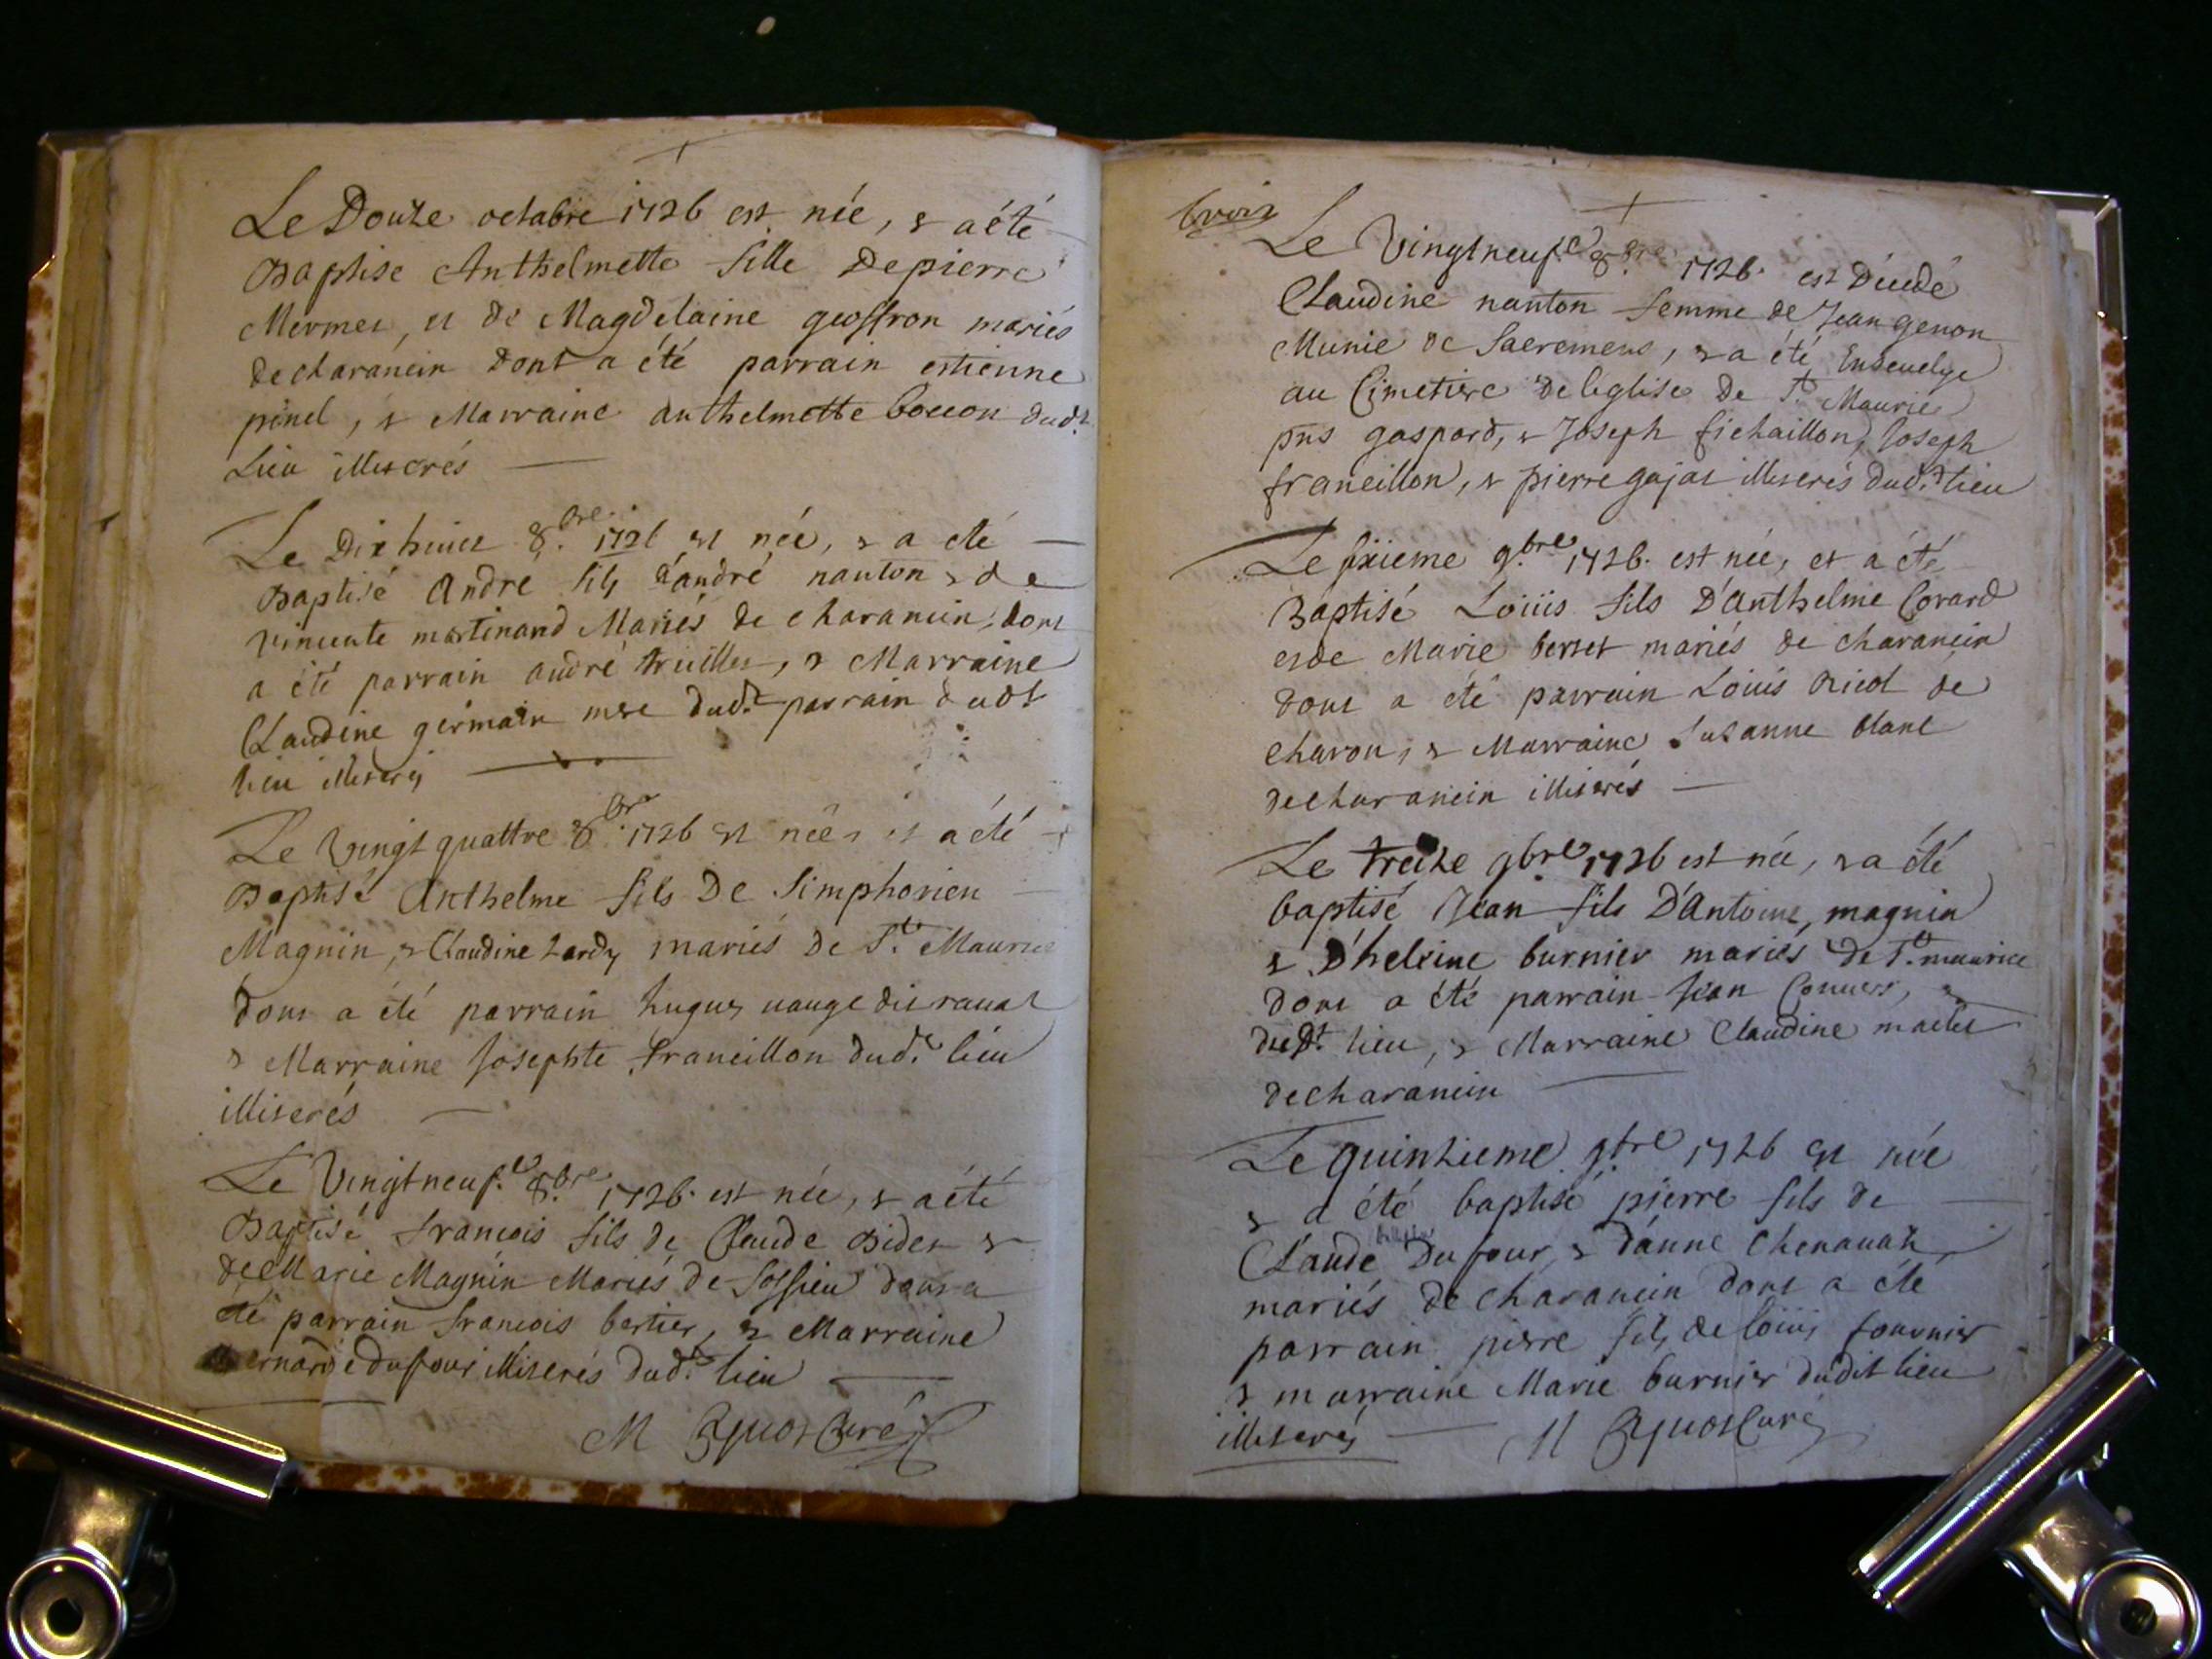 Le Douze octobre 1726 est née, & a été
Baptise Anthelmette fille De pierre
Mermet, et de Magdelaine geoffron mariés
de charancin Dont a été parrain estienne
pinel, & Marraine anthelmette bocon dudt
Lieu illiterés
Le Dix huict 8.bre 1726 est née, & a eté
Baptisé André fils d'andré nanton & de
vincente martinand Mariés de charancin, dont
a été parrain andré truillet, & Marraine
Claudine germain mere dud.t parrain dudt
lieu illiterés
Le Vingt quattre 8.bre 1726 est née, et a été
Baptisé Anthelme fils De Simphorien
Magnin, & Claudine hardy mariés de St. Maurice
dont a été parrain hugues uauge dit rauat
& Marraine Josephte francillon dud.t lieu
illiterés
Le Vingtneuf.e 8.bre 1726. est née, & a été
Baptisé francois fils de Claude Bidet &
de Marie Magnin Mariés de Sossieu dont a
été parrain francois bertier, & Marraine
Bernarde dufour illiterés dud.t lieu
M Cyuot Curé
Le Vingtneuf.e 8.bre 1726. est Décédé
Claudine nanton femme de Jean genon
Munie de Sacremens, & a été Enseuelye
au Cimetiere de l'eglise De St. Maurice
pns gaspard, & Joseph fichaillon, Joseph
francillon, & pierre gajat illiterés dud.t lieu
Le sixieme 9.bre 1726. est née, et a été
Baptisé Loüis fils D'Anthelme Covard
et de Marie berset mariés de charancin
dont a été parrain Loüis Ricol de
charon, & Marraine Susanne blanc
de charancin illiterés
Le treize 9bre 1726 est née, & a été
baptisé Jean fils D'Antoine magnin
& D'heleine burnier mariés de St. maurice
dont a été parrain Jean Conuers,
dudt. lieu, & Marraine Claudine
de charancin
Le quinzieme 9.bre 1726 est née
& a été baptisé pierre fils de
Claude Dufour, & d'anne Chenauat
mariés de charancin dont a été
parrain pierre fils de loüis fournier
& marraine Marie burnier dudit lieu
illiterés
M Cyuot Curé